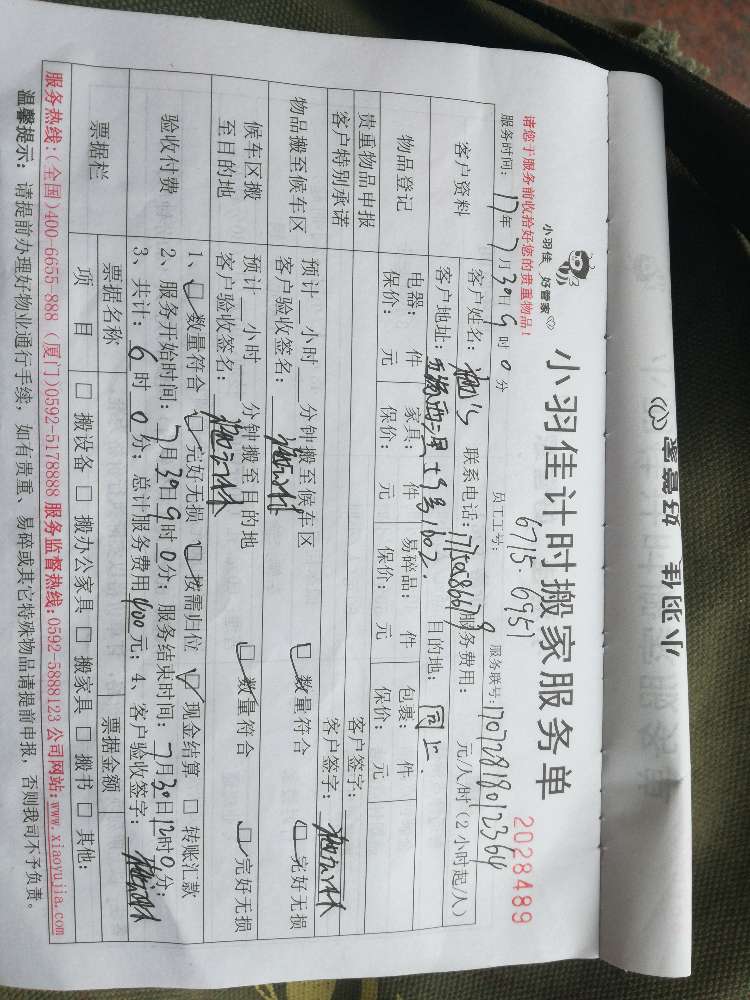 小羽佳 好管家
小羽佳计时搬家服务单
2028489
请您于服务前收拾好您的贵重物品！
6715.6951
服务时间：17年7月30日9时0分 员工工号： 服务联号：17072818012364
客户资料
客户姓名： 联系电话： 服务费用： 元/人/时（2小时起/人）
客户地址： 目的地：同上.
物品登记
电器： 件 家具： 件 易碎品： 件 包裹： 件
保价： 元 保价： 元 保价： 元 保价： 元
贵重物品申报 客户签字：
客户特别承诺 客户签字：
物品搬至候车区
预计 小时 分钟搬至候车区
客户验收签名： 数量符合 完好无损
候车区搬至目的地
预计 小时 分钟搬至目的地
客户验收签名： 数量符合 完好无损
验收付费
1、 数量符合 完好无损 按需归位 现金结算 转账汇款
2、服务开始时间：7月30日9时0分；服务结束时间：7月30日12时0分；
3、共计：6时0分；总计服务费用400元；4、客户验收签字：
票据栏
票据名称 票据金额
项目 搬设备 搬办公家具 搬家具 搬书 其他：
服务热线：（全国）400-6655-888（厦门）0592-5178888 服务监督热线：0592-5888123 公司网站：www.xiaoyujia.com
温馨提示：请提前办理好物业通行手续，如有贵重、易碎或其它特殊物品请提前申报，否则我司不予负责。